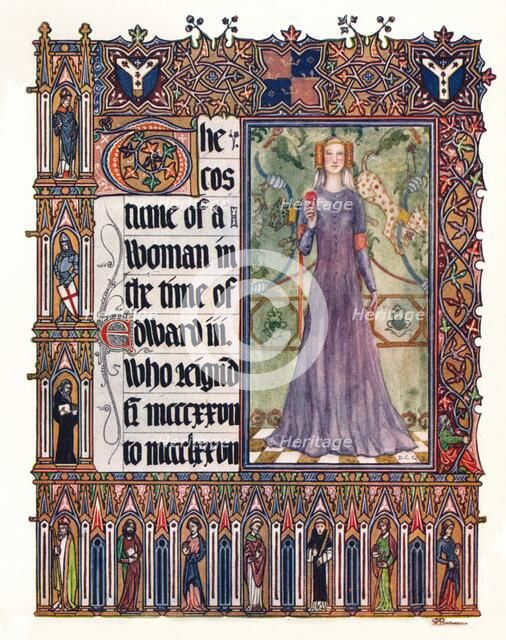 The
cos
tume of a
Woman in
the time of
Edward iii.
Who reign'd
mcccxxvii
to mccclxxvii
D.C.C.
Heritage
Heritage
Heritage
Heritage
Heritage
Heritage